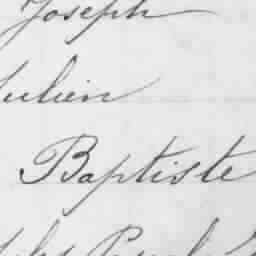 Joseph
Julien
Baptiste